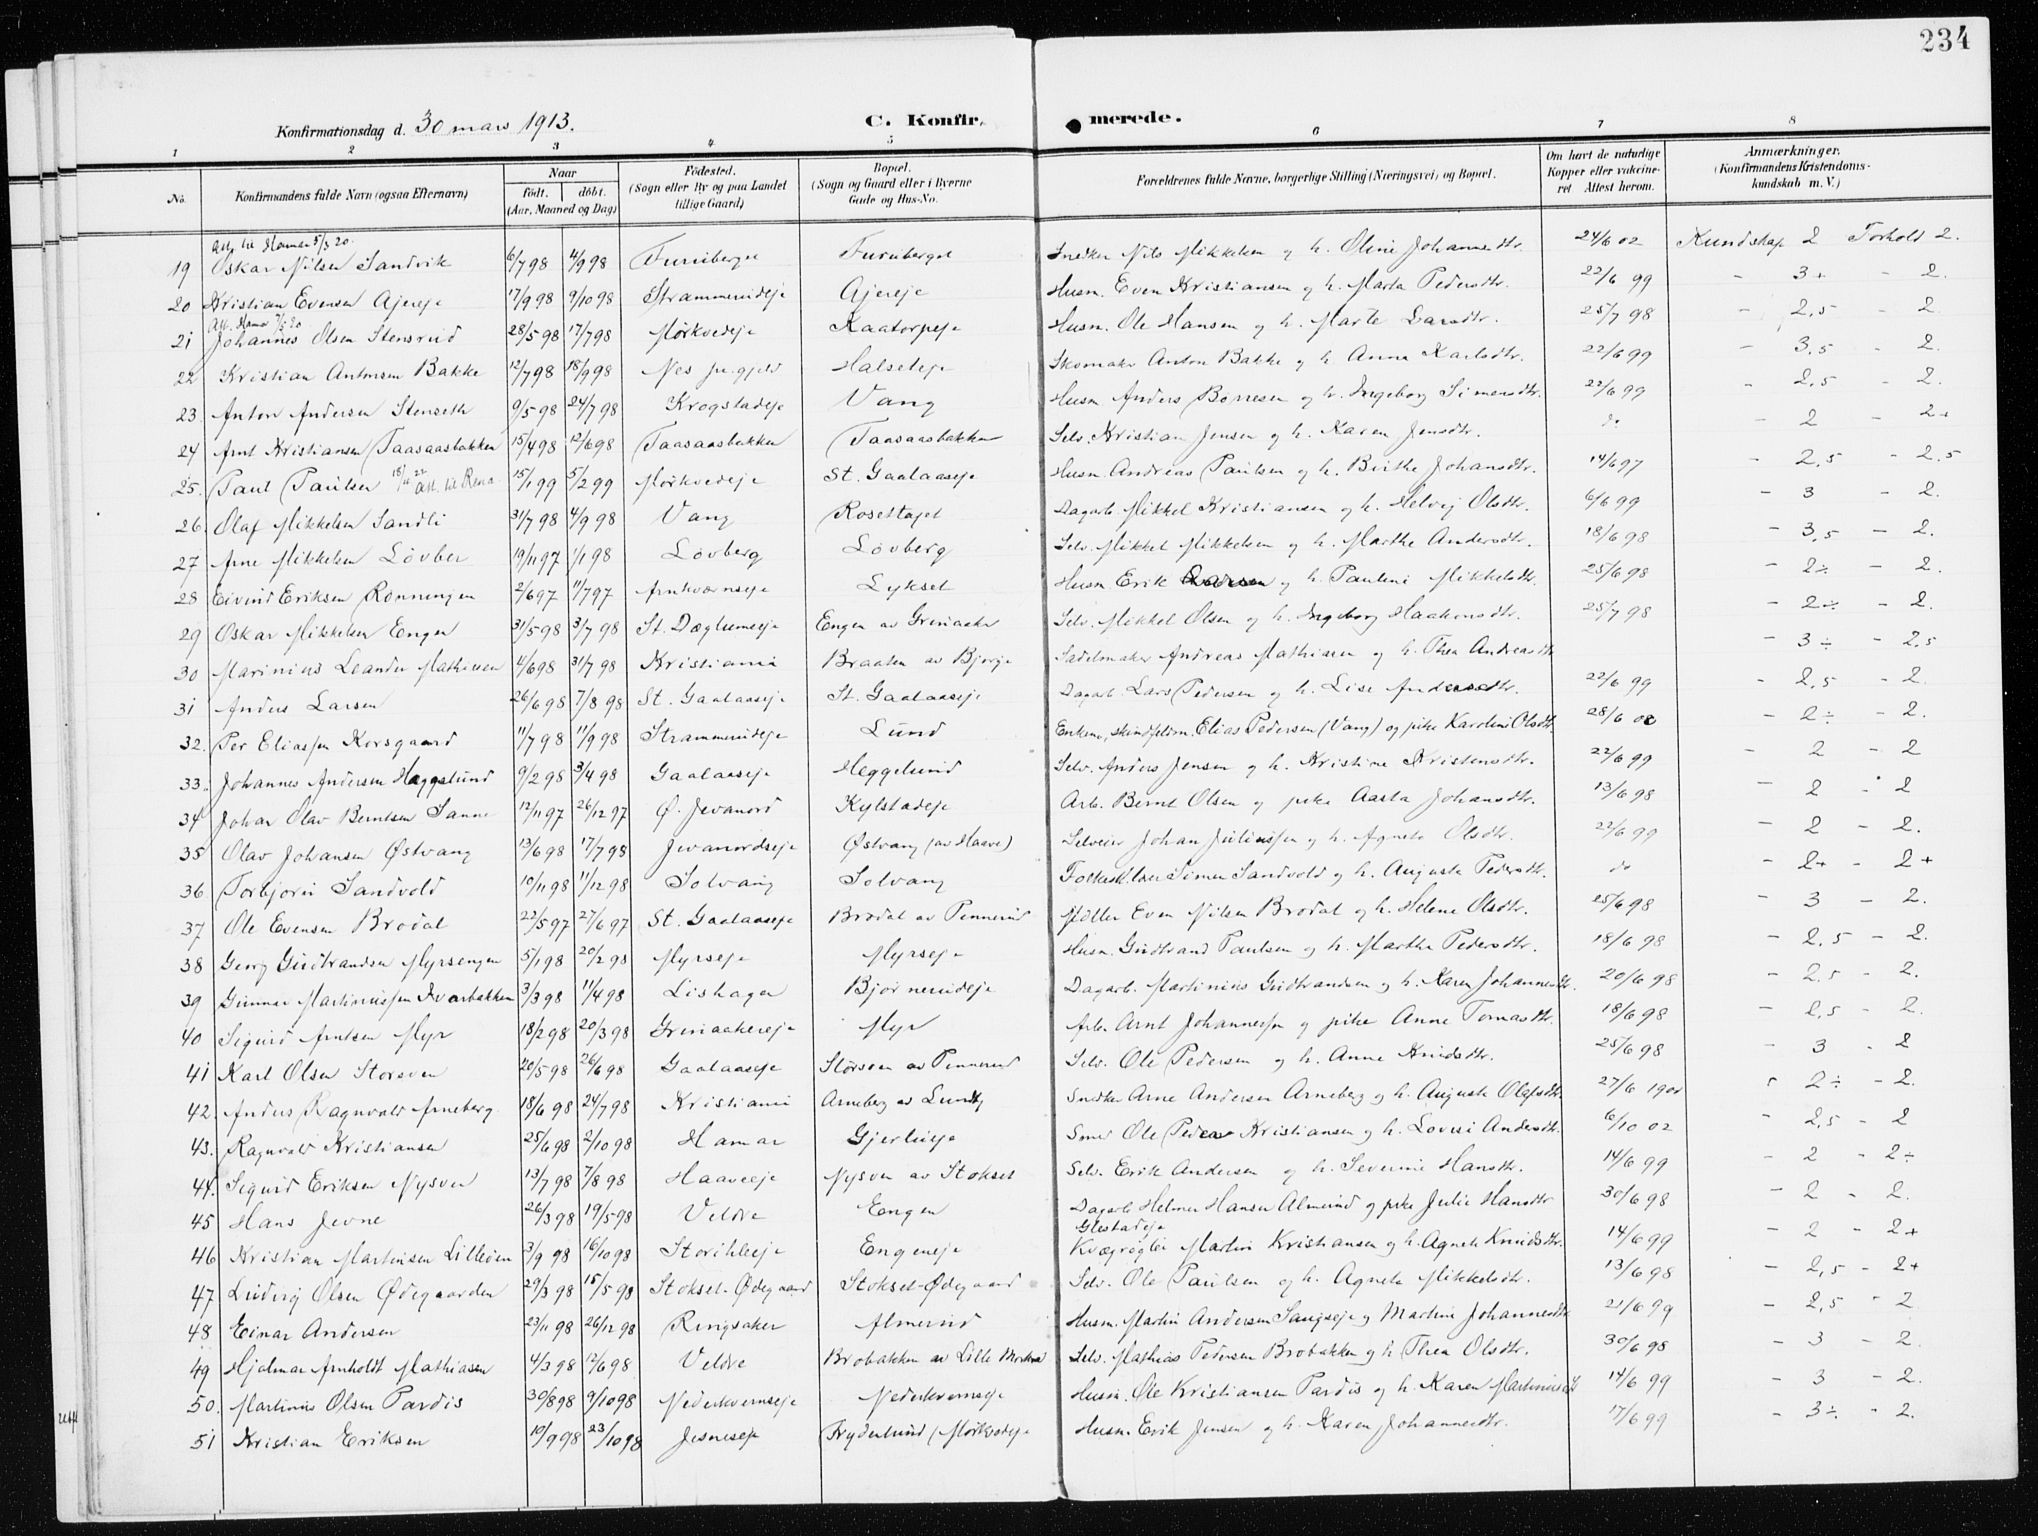 234
Konfirmationsdag d. 30 mars 1913. C. Konfir- merede.
1 2 3 4 5 6 7 8
No. Konfirmandens fulde Navn (ogsaa Efternavn) Naar født. døbt. (Aar, Maaned og Dag) Fødested. (Sogn eller By og paa Landet tillige Gaard) Bopæl. (Sogn og Gaard eller i Byerne Gade og Hus-No. Forældrenes fulde Navne, borgerlige Stilling (Næringsvei) og Bopæl. Om havt de naturlige Kopper eller vakcineret Attest herom. Anmærkninger. (Konfirmandens Kristendomskundskab m. V.)
Att. til Hamar 5/3 20.
19 Oskar Nilsen Sandvik 6/7 98 4/9 98 Furuberget Furuberget Snedker Nils Mikkelsen og h. Oline Johannesdtr. 24/6 02 Kundskap 2 Forhold 2.
20 Kristian Evensen Ajereje 17/9 98 9/10 98 Strammerudeje Ajereje Husm. Even Kristiansen og h. Marta Pedersdtr. 22/6 99 - 3+ - 2.
Att. Hamar 7/5 20
21 Johannes Olsen Stensrud 28/5 98 17/7 98 Mørkvedeje Kaatorpeje Husm. Ole Hansen og h. Marte Larsdtr. 25/7 98 - 2,5 - 2.
22 Kristian Antonsen Bakke 12/7 98 18/9 98 Nes pr.gjeld Halseteje Skomaker Anton Bakke og h. Anna Karlsdtr. 22/6 99 - 3,5 - 2.
23. Anton Andersen Stenseth 9/5 98 24/7 98 Krogstadeje Vang Husm Anders Børresen og h. Ingeborg Simensdtr. 22/6 99 - 2,5 - 2.
24 Arnt Kristiansen Taasaasbakken 15/4 98 12/6 98 Taasaasbakken Taasaasbakken Selv. Kristian Jensen og h. Karen Jensdtr. do - 2 - 2+
25. Paul Paulsen 15/11 22 att. til Rena 15/1 99 5/2 99 Mørkvedeje St. Gaalaaseje Husm. Andreas Paulsen og h. Birthe Johansdtr. 14/6 97 - 2,5 - 2.5
26. Olaf Mikkelsen Sandli 31/7 98 4/9 98 Vang Rosettajet Dagarb. Mikkel Kristiansen og h. Helvig Olsdtr. 6/6 99 - 3 - 2.
27 Arne Mikkelsen Løvber 19/11 97 1/1 98 Løvberg Løvberg Selv. Mikkel Mikkelsen og h. Marthe Andersdtr. 18/6 98 - 3,5 - 2.
28 Eivind Eriksen Rønningen 2/6 97 11/7 97 Arnkværnseje Lykset Husm. Erik Larsen og h. Pauline Mikkelsdtr. 25/6 98 - 2÷ - 2.
29 Oskar Mikkelsen Engen 31/5 98 3/7 98 St. Dæglumseje Engen av Grinaaker Selv. Mikkel Olsen og h. Ingeborg Haakensdtr. 25/7 98 - 2÷ - 2.
30 Marinius Leander Mathisen 4/6 98 31/7 98 Kristiania Braaten av Bjørge Sadelmaker Andreas Mathisen og h. Thea Andreasdtr - 3÷ - 2,5
31 Anders Larsen 26/6 98 7/8 98 St. Gaalaaseje St. Gaalaaseje Dagarb. Lars Pedersen og h. Lise Andersdtr. 22/6 99 - 2,5 - 2.
32. Per Eliassen Korsgaard 11/7 98 11/9 98 Strammerudeje Lund Enkem., skindfeldm. Elias Pedersen (Vang) og pike Karoline Olsdtr. 28/6 02 - 2÷ - 2.
33. Johannes Andersen Heggelund 9/2 98 3/4 98 Gaalaaseje Heggelund Selv. Anders Jensen og h. Kristine Kristensdtr. 22/6 99 - 2 - 2
34 Johan Olav Berntsen Sanne 12/11 97 26/12 97 Ø. Jevanord Kylstadeje Arb. Bernt Olsen og pike Aasta Johansdtr. 13/6 98 - 2 - 2
35 Olav Johansen Østvang 13/6 98 17/7 98 Jevanordseje Østvang (av Haave) Selveier Johan Juliussen og h. Agnete Olsdtr. 22/6 99 - 2 - 2.
36 Torbjørn Sandvold 10/11 98 11/12 98 Solvang Solvang Folkesk.lærer Simen Sandvold og h. Augusta Pedersdtr. do - 2+ - 2+
37 Ole Evensen Brodal 22/5 97 27/6 97 St. Gaalaaseje Brodal av Pennerud Møller Even Nilsen Brodal og h. Helene Olsdtr. 25/6 98 - 3 - 2.
38 Georg Gudbrandsen Myrsengen 5/1 98 20/2 98 Myrseje Myrseje Husm. Gudbrand Paulsen og h. Marthe Pedersdtr. 18/6 98 - 2,5 - 2.
39 Gunnar Martinussen Svarbakken 3/3 98 11/4 98 Lishagen Bjørnerudeje Dagarb. Martinius Gudbrandsen og h. Karen Johannesdtr. 20/6 98 - 2.5 - 2.
40 Sigurd Arntsen Myr 18/2 98 20/3 98 Grinaakereje Myr Arb. Arnt Johannessen og pike Anne Tomasdtr. 18/6 98 - 2,5 - 2.
41 Karl Olsen Storsven 20/5 98 26/6 98 Gaalaaseje Storsven av Pennerud Selv. Ole Pedersen og h. Anne Knudsdtr. 25/6 98 - 3 - 2
42. Anders Ragnvald Arneberg. 18/6 98 24/7 98 Kristiania Arneberg av Lundby Snedker Arne Andersen Arneberg og h. Augusta Olafsdtr. 27/6 1901 - 2÷ - 2.
43. Ragnvald Kristiansen 25/6 98 2/10 98 Hamar Gjerlueje Smed Ole Peder Kristiansen og h. Lovise Andersdtr. 6/10 02 - 2,5 - 2
44. Sigurd Eriksen Nysven 13/7 98 7/8 98 Haaveeje Nysven av Stokset Selv. Erik Andersen og h. Severine Hansdtr. 14/6 99 - 2 - 2÷
45 Hans Jevne 26/3 98 19/5 98 Veldre Engen Dagarb Helmer Hansen Almerud og pike Julie Hansdtr 30/6 98 - 2 - 2.
Glestadeje
46 Kristian Martinsen Lilleøen 3/9 98 16/10 98 Storihleeje Engeneje Kvægrøgter Martin Kristiansen og h. Agnete Knudsdtr. 14/6 99 - 2 - 2+
47 Ludvig Olsen Ødegaarden 29/3 98 15/5 98 Stokset-Ødegaard Stokset-Ødegaard Selv. Ole Paulsen og h. Agnete Mikkelsdtr. 13/6 98 - 2,5 - 2+
48 Einar Andersen 23/11 98 26/12 98 Ringsaker Almerud Husm. Martin Andersen Saugseje og Martine Johannesdtr 21/6 99 - 2,5 - 2
49 Hjalmar Arnholdt Mathiasen 4/3 98 12/6 98 Veldre Brobakken av Lille Mørkve Selv. Mathias Pedersen Brobakken og h Thea Olsdtr. 30/6 98 - 3 - 2.
50. Martinus Olsen Pardis 30/8 98 9/10 98 Nederkverneje Nederkverneje Husm. Ole Kristiansen Pardis og h. Karen Martinusd 14/6 99 - 3 - 2.
51 Kristian Eriksen 10/9 98 23/10 98 Jesneseje Fryderlund (Mørkvedeje Husm. Erik Jensen og h. Karen Johannesdtr. 17/6 99 - 3÷ - 2.